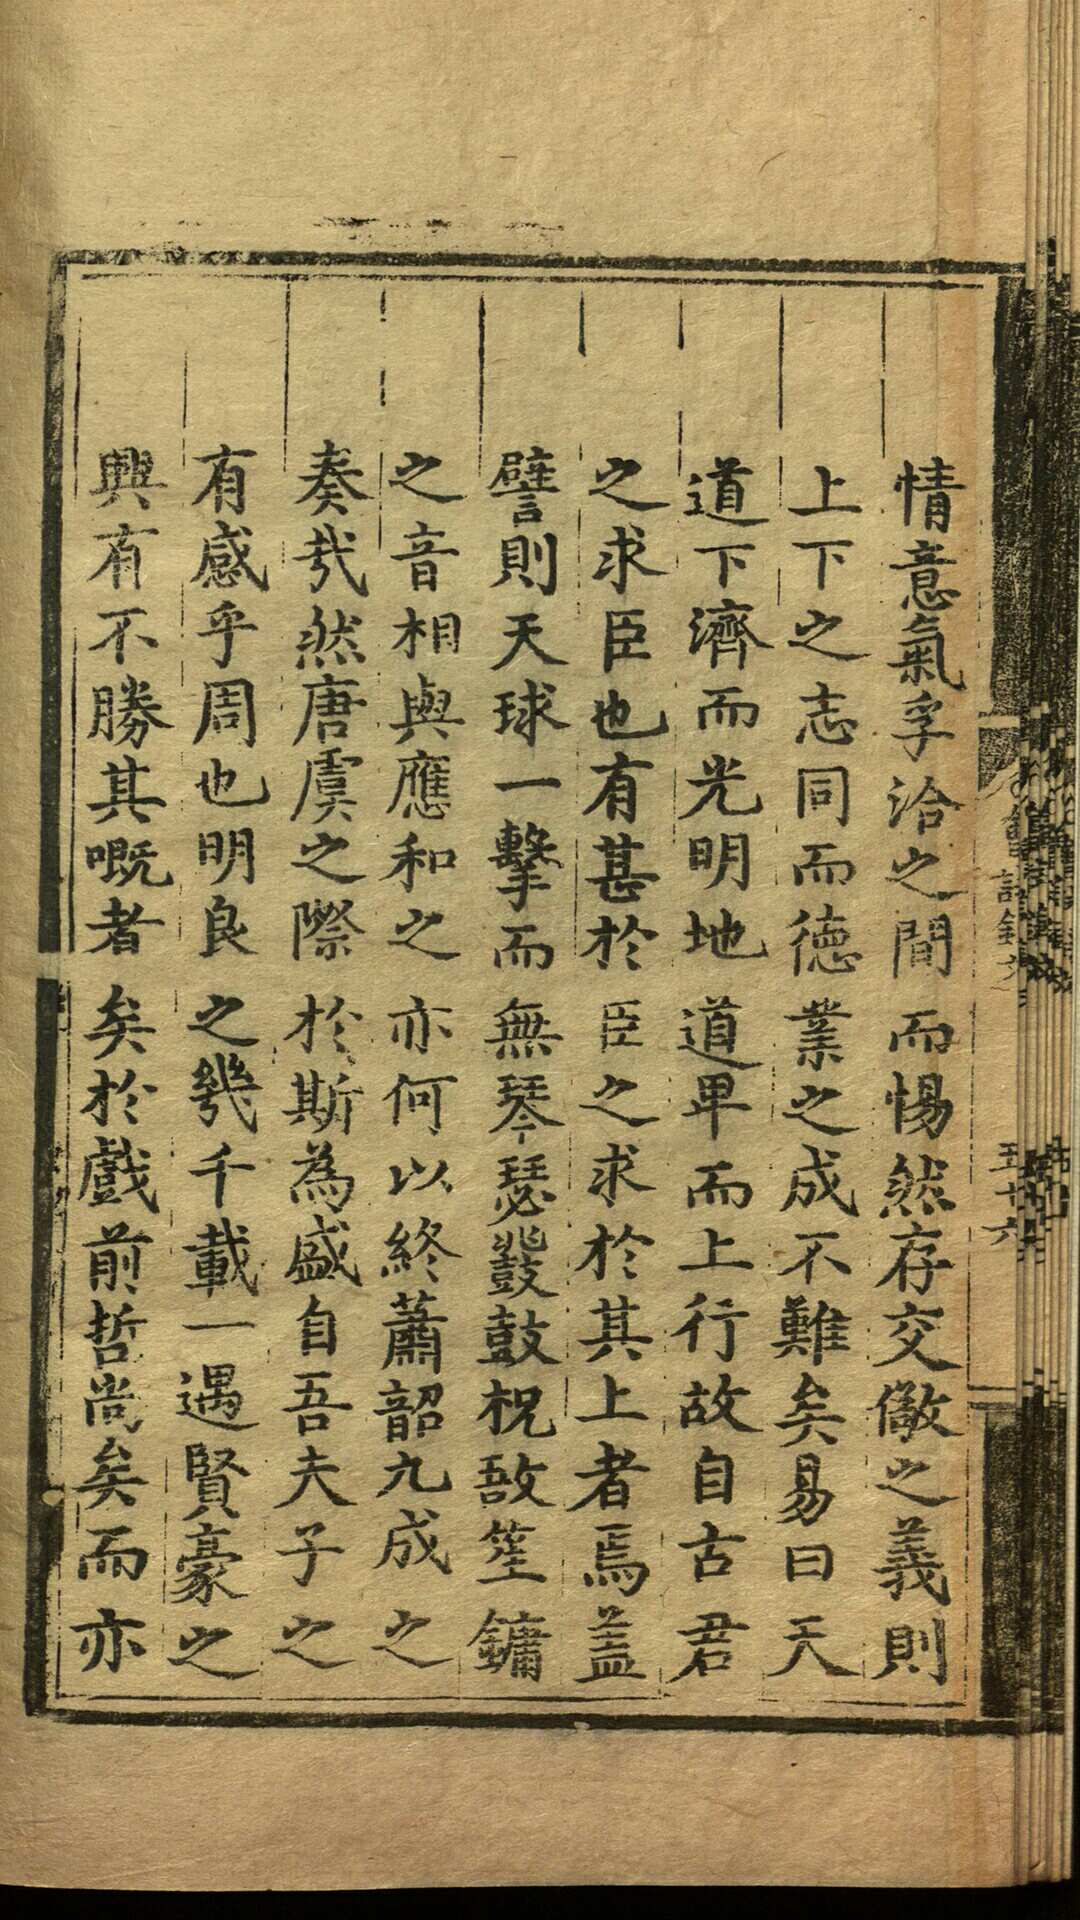 情意氣孚洽之間而惕然存交儆之義則
上下之志同而德業之成不難矣易曰天
道下濟而光明地道卑而上行故自古君
之求臣也有甚於臣之求於其上者焉蓋
譬則天球一擊而無琴瑟鼗鼓柷敔笙鏞
之音相與應和之亦何以終蕭韶九成之
奏哉然唐虞之際於斯為盛自吾夫子之
有感乎周也明良之幾千載一遇賢豪之
興有不勝其嘅者矣於戲前哲尚矣而亦
五十六